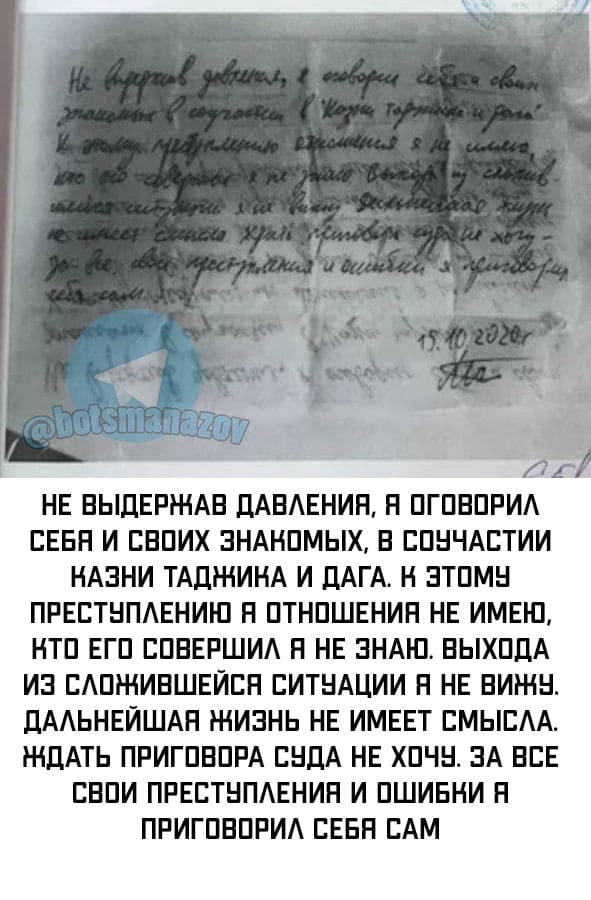 Не выдержав давления, я оговорил себя и своих
знакомых в соучастии в "казни таджика и дага"
К этому преступлению отношения я не имею,
кто его совершил я не знаю Выхода из сложив-
шейся ситуации я не вижу Дальнейшая жизнь
не имеет смысла Ждать приговора суда не хочу -
за все свои преступления и ошибки я приговорил
себя сам.
15.10 2020г
@botsmanazov
НЕ ВЫДЕРЖАВ ДАВЛЕНИЯ, Я ОГОВОРИЛ
СЕБЯ И СВОИХ ЗНАКОМЫХ, В СОУЧАСТИИ
КАЗНИ ТАДЖИКА И ДАГА. К ЭТОМУ
ПРЕСТУПЛЕНИЮ Я ОТНОШЕНИЯ НЕ ИМЕЮ,
КТО ЕГО СОВЕРШИЛ Я НЕ ЗНАЮ. ВЫХОДА
ИЗ СЛОЖИВШЕЙСЯ СИТУАЦИИ Я НЕ ВИЖУ.
ДАЛЬНЕЙШАЯ ЖИЗНЬ НЕ ИМЕЕТ СМЫСЛА.
ЖДАТЬ ПРИГОВОРА СУДА НЕ ХОЧУ. ЗА ВСЕ
СВОИ ПРЕСТУПЛЕНИЯ И ОШИБКИ Я
ПРИГОВОРИЛ СЕБЯ САМ